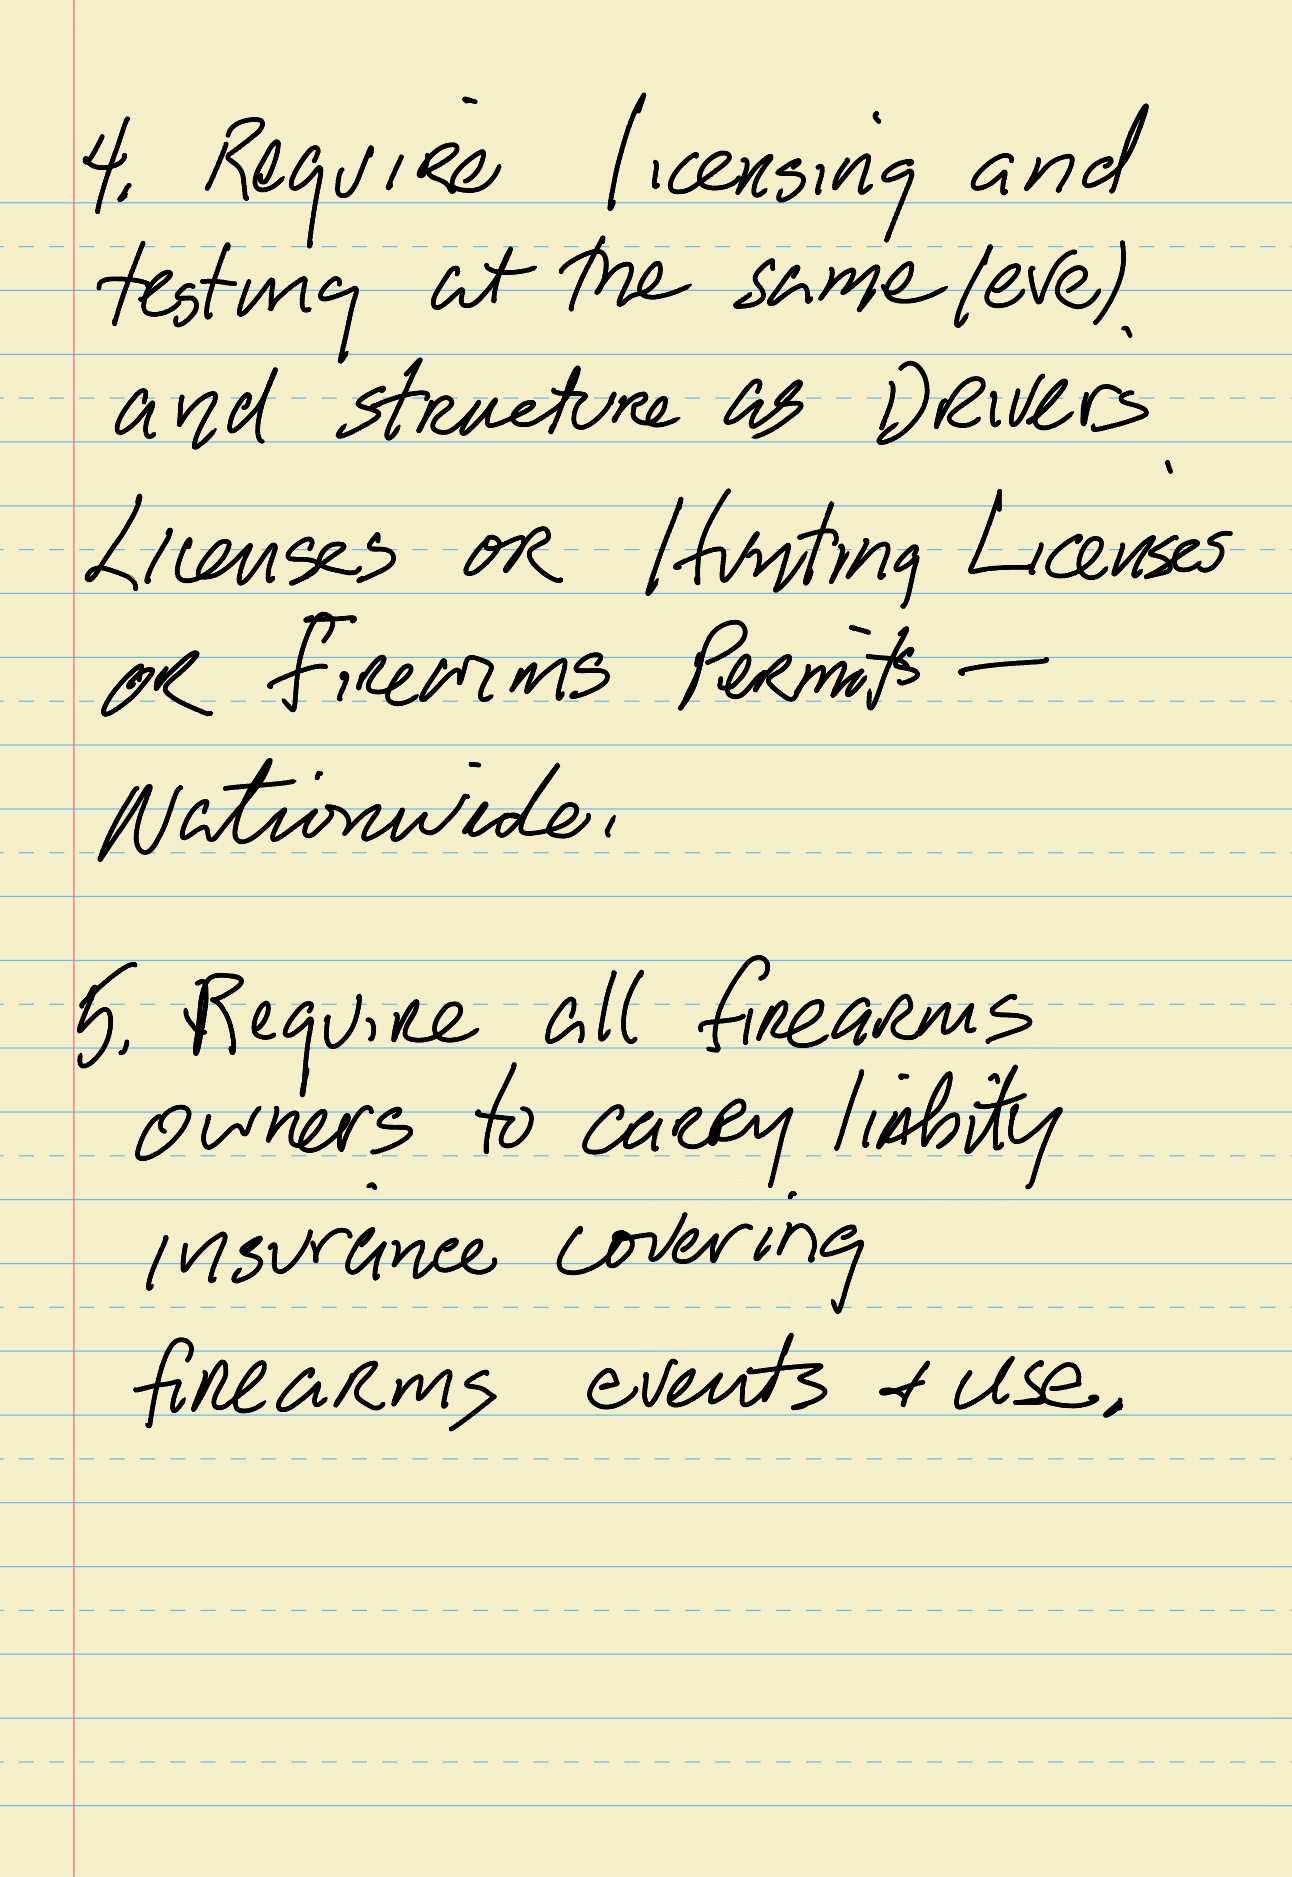 4. Require licensing and
testing at the same level
and structure as Drivers
Licenses or Hunting Licenses
or firearms Permits —
Nationwide.
5. Require all firearms
owners to carry liabity
insurance covering
firearms events + use.